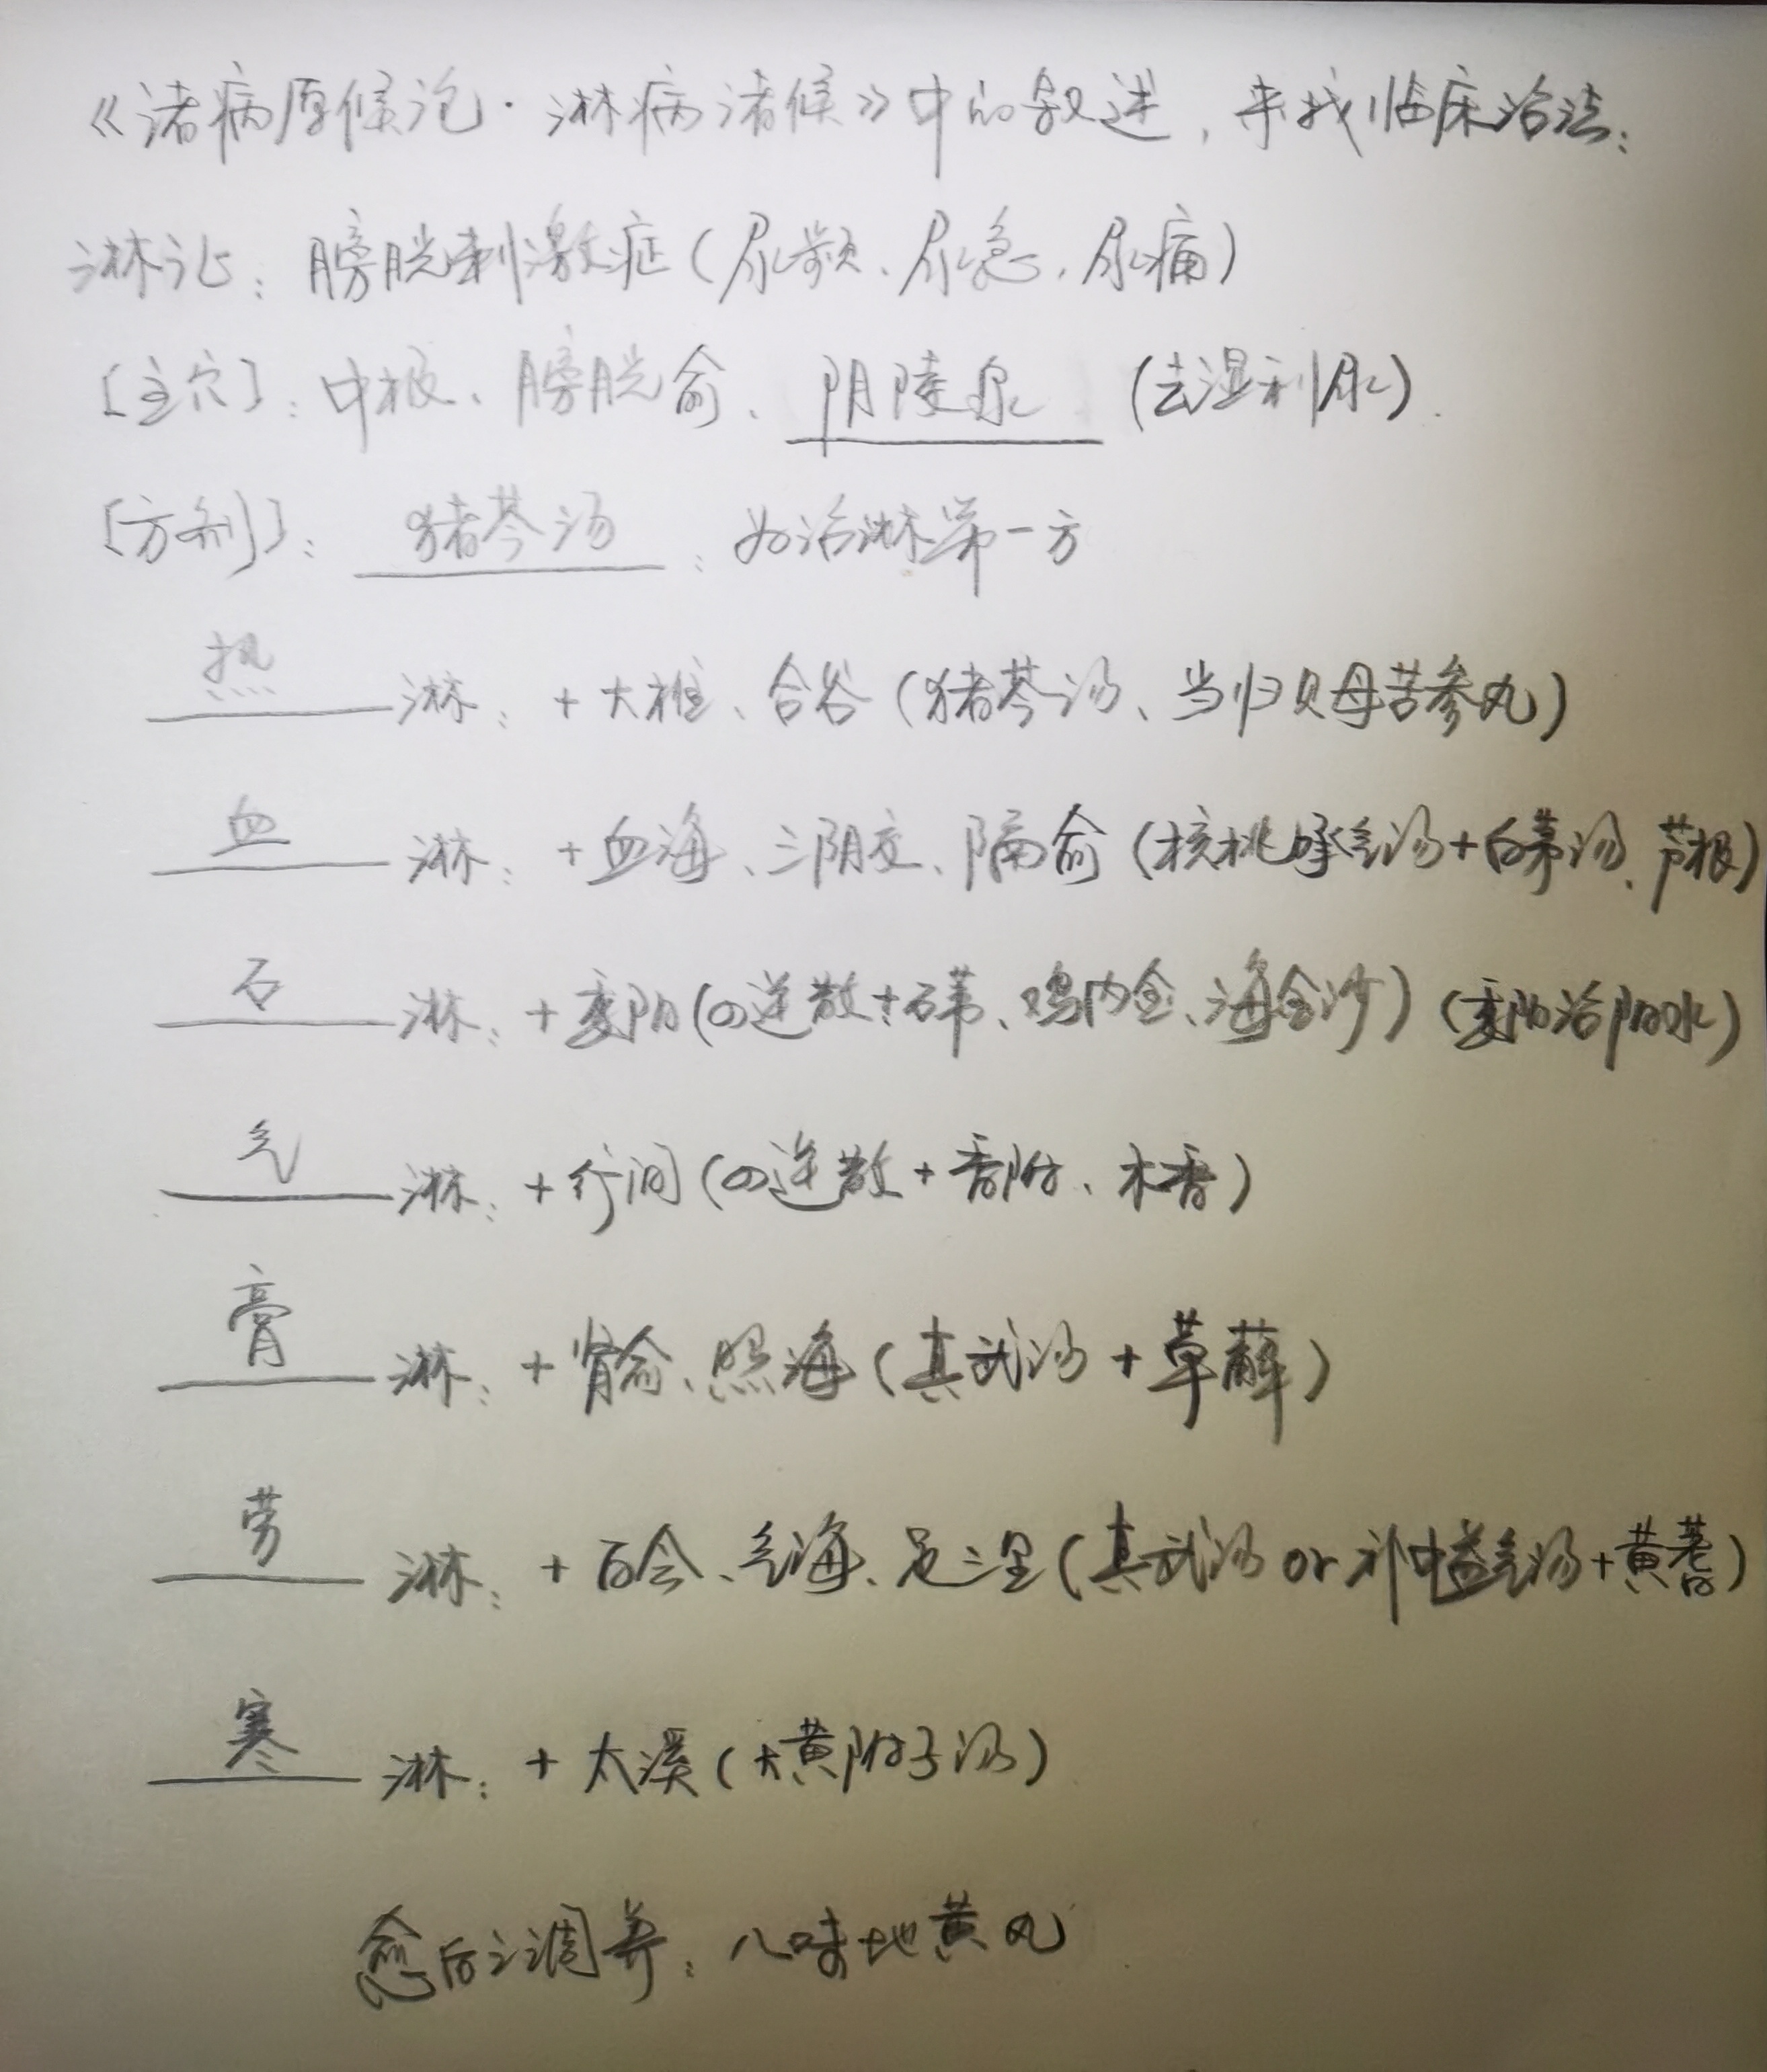 《诸病原候论·淋病诸候》中的叙述，来找临床治法：
淋证：膀胱刺激症（尿频、尿急、尿痛）
[主穴]：中极、膀胱俞、阴陵泉（去湿利尿）.
[方剂]：猪苓汤：为治淋第一方
热淋：+大椎、合谷（猪苓汤、当归贝母苦参丸）
血淋：+血海、三阴交、隔俞（核桃承气汤+白茅汤、芦根）
石淋：+委阳（四逆散+石韦、鸡内金、海金沙）（委阳治阳水）
气淋：+行间（四逆散+香附、木香）
膏淋：+肾俞、照海（真武汤+草薢）
劳淋：+百会、气海、足三里（真武汤or补中益气汤+黄耆）
寒淋：+太溪（大黄附子汤）
愈后之调养：八味地黄丸